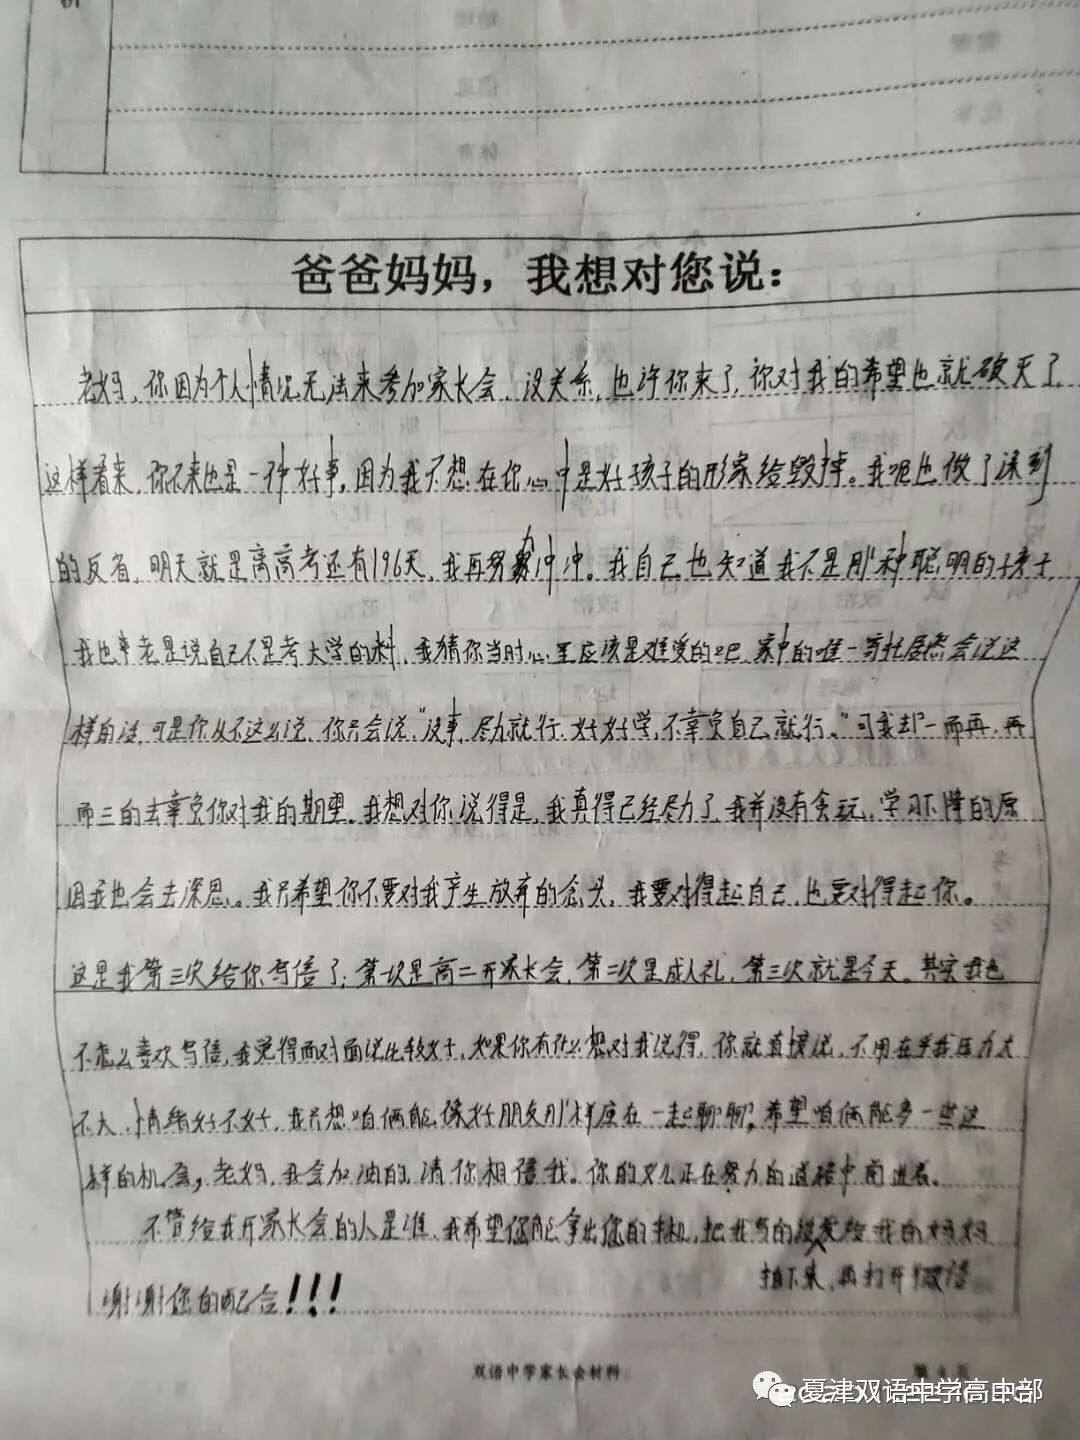 体育
爸爸妈妈，我想对您说：
老妈，你因为个人情况无法来参加家长会，没关系，也许你来了，你对我的希望也就破灭了，
这样看来，你不来也是一种好事，因为我不想在你心中是好孩子的形象给毁掉。我呢也做了深刻
的反省，明天就是离高考还有196天，我再努努力冲冲。我自己也知道我不是那种聪明的孩子，
我也老是说自己不是考大学的料，我猜你当时心里应该是难受的吧，家中的唯一寄托居然会说这
样的话，可是你从不这么说，你只会说，"没事，尽力就行，好好学，不辜负自己就行。"可我却一而再，再
而三的去辜负你对我的期望。我想对你说得是，我真得已经尽力了，我并没有贪玩，学习下降的原
因我也会去深思。我只希望你不要对我产生放弃的念头，我要对得起自己，也要对得起你。
这是我第三次给你写信了；第一次是高二开家长会，第二次是成人礼，第三次就是今天。其实我也
不怎么喜欢写信，我觉得面对面说比较好，如果你有什么想对我说得，你就直接说，不用在乎我压力大
不大，情绪好不好，我只想咱俩能像好朋友那样座在一起聊聊，希望咱俩能多一些这
样的机会，老妈，我会加油的，请你相信我。你的女儿正在努力的道路中前进着。
不管给我开家长会的人是谁，我希望您能拿出您的手机，把我写的发给我的妈妈
拍下来，再打开微信
谢谢您的配合！！！
双语中学家长会材料
夏津双语中学高中部